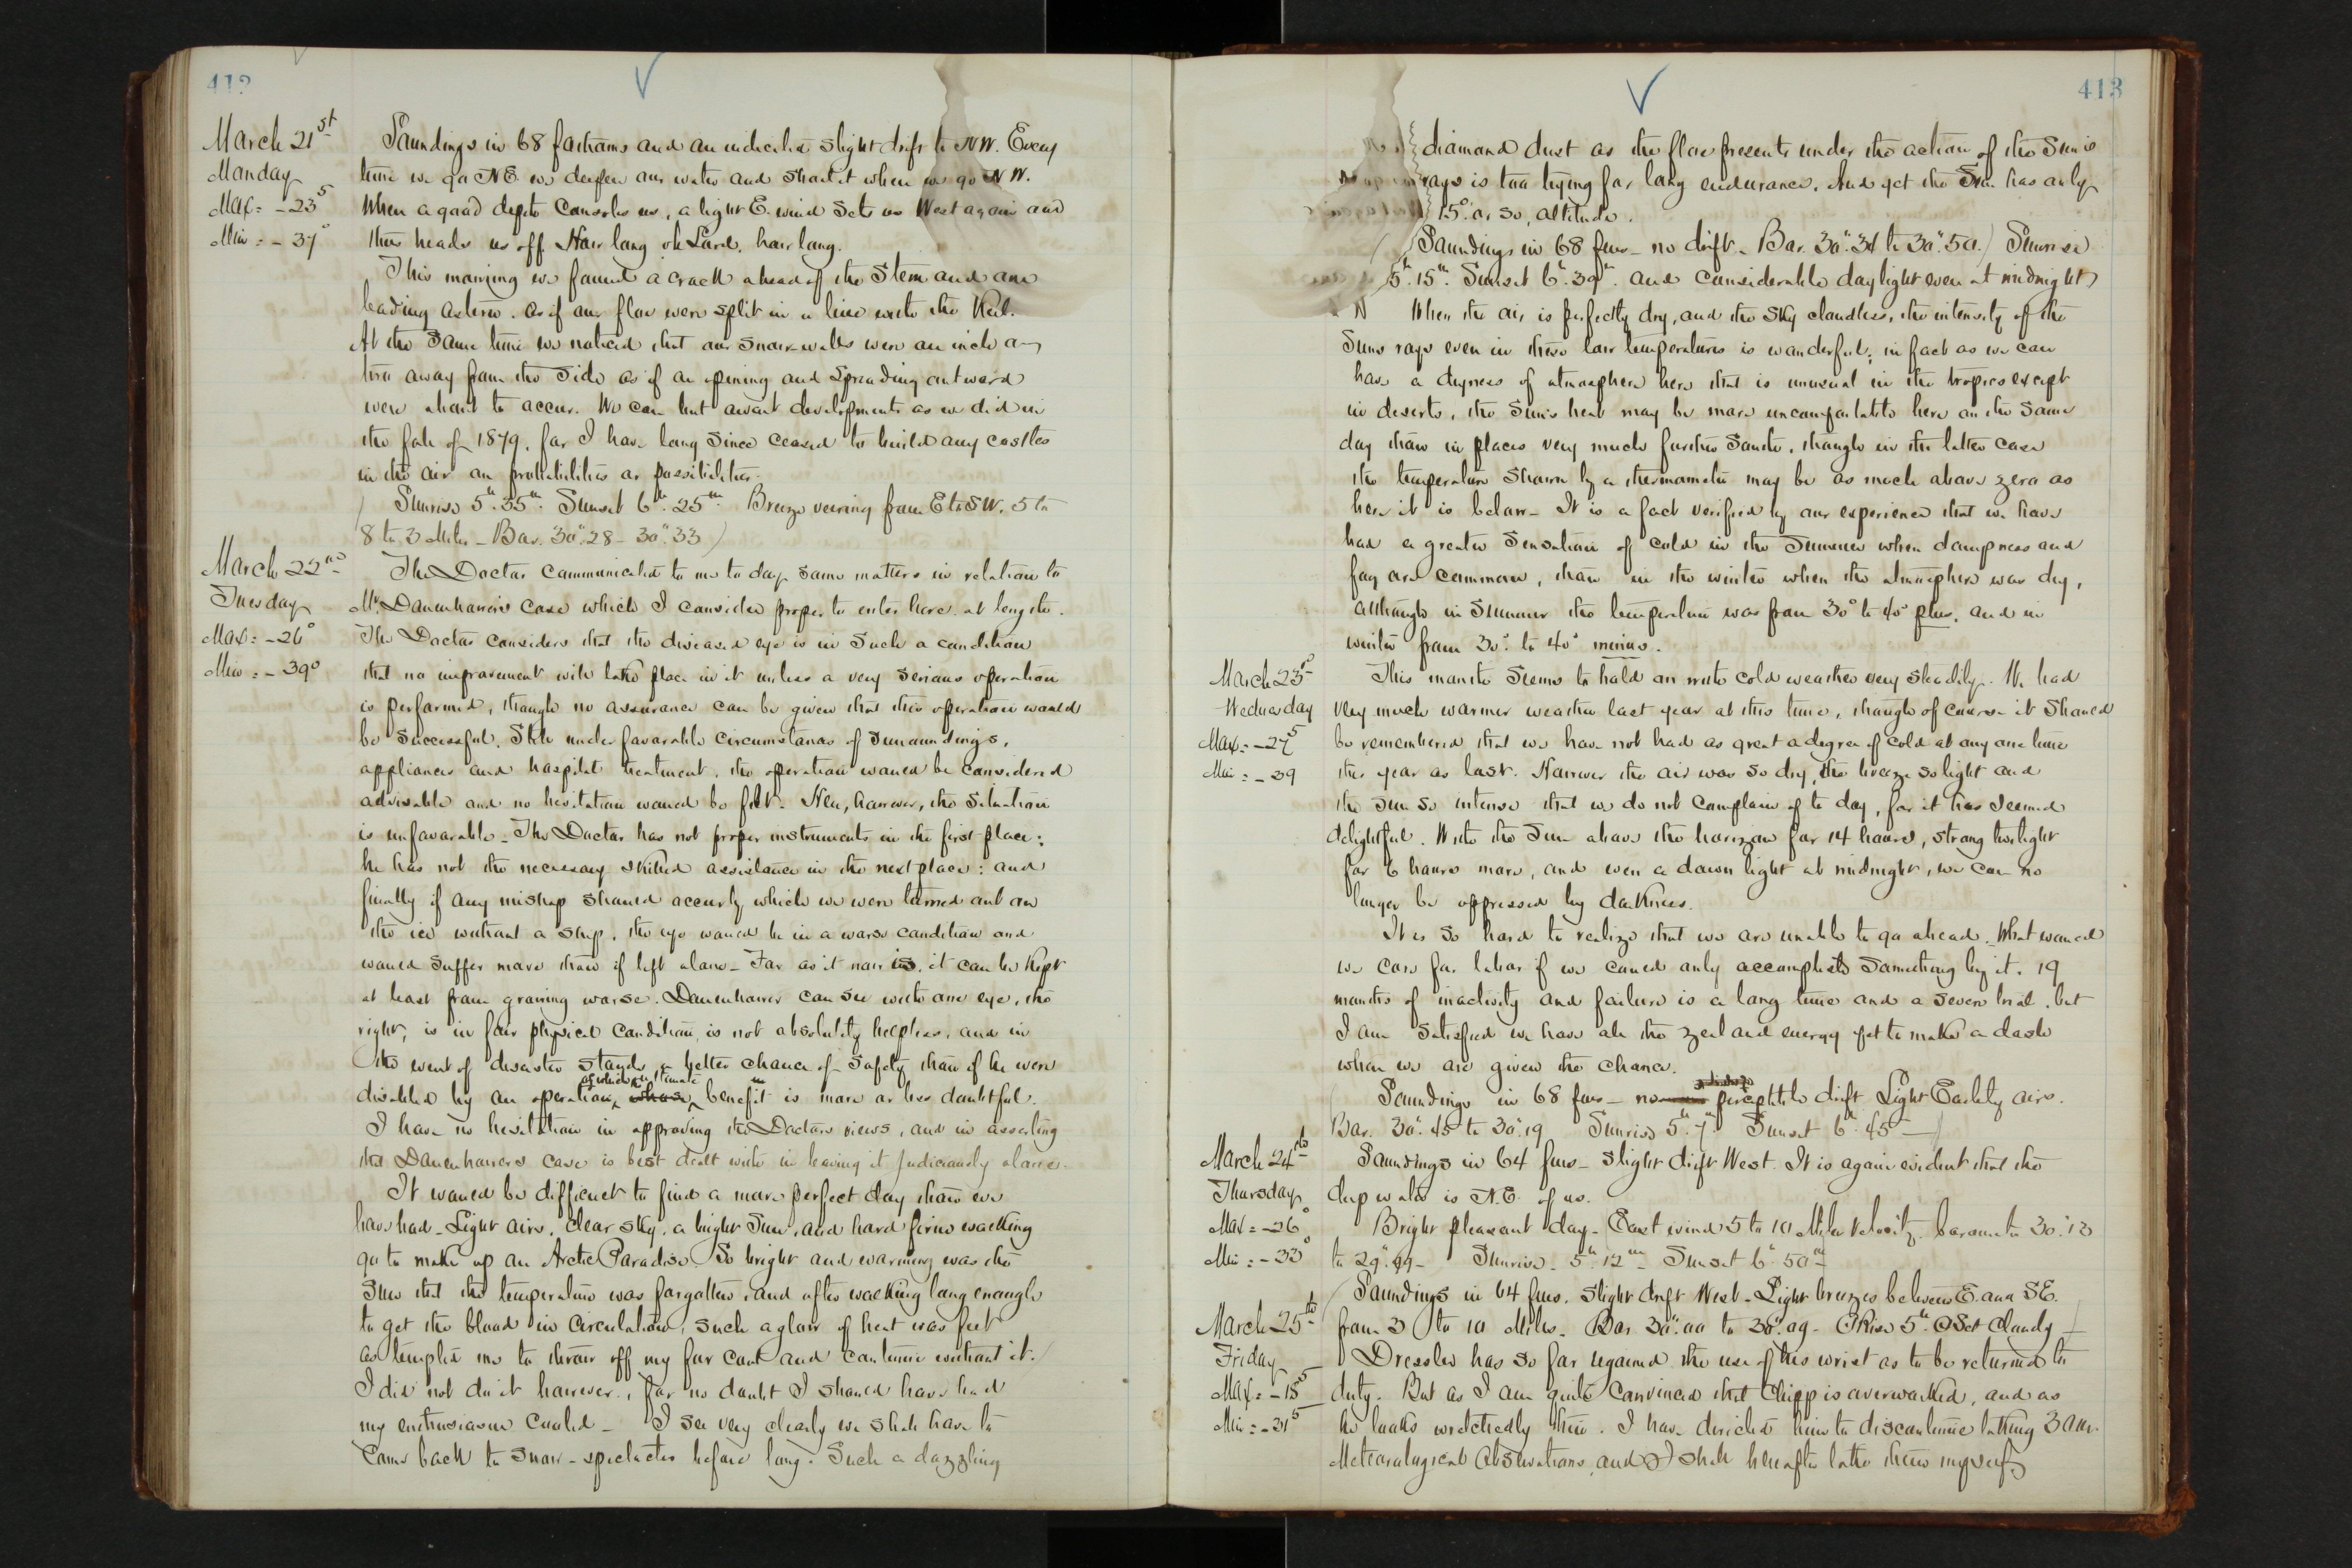 412
March 21st
Monday
Max = -23⁵
Min = -37°
Soundings in 68 fathoms and an indicated slight drift to NW. Every
time we go NE. we deepen our water and shoal it when we go NW.
When a good depth consoles us, a light E. wind sets us West again and
thus heads us off. How long oh Lord, how long.
This morning we found a crack ahead of the stem and one
leading astern. As if our floe were split in a line with the Keel.
At the same time we noticed that our snow-walls were an inch or
two away from the side as if an opening and spreading outward
were about to occur. We can but await developments as we did in
the fall of 1879, for I have long since ceased to build any castles
in the air on probabilities or possibilities.
(Sunrise 5h.35m. Sunset 6h.25m Breeze veering from E to SW. 5 to
8 to 3 Miles - Bar. 30".28 - 30".33)
March 22nd
Tuesday
Max = -26°
Min = -39°
The Doctor communicated to me to day some matters in relation to
Mr. Danenhower's case which I consider proper to enter here at length.
The Doctor considers that the diseased eye is in such a condition
that no improvement will take place in it unless a very serious operation
is performed, though no assurance can be given that this operation would
be successful. Still under favorable circumstances of surroundings,
appliances and hospital treatment, the operation would be considered
advisable and no hesitation would be felt. Here, however, the situation
is unfavorable. The Doctor has not proper instruments in the first place;
he has not the necessary skilled assistance in the next place; and
finally if any mishap should occur by which we were turned out on
the ice without a ship, the eye would be in a worse condition and
would suffer more than if left alone - For as it now is, it can be kept
at least from growing worse. Danenhower can see with one eye, the
right, is in fair physical condition, is not absolutely helpless, and in
the event of disaster stands a better chance of safety than if he were
disabled by an operation, of which the ultimate benefit is more or less doubtful.
I have no hesitation in approving the Doctors views, and in asserting
that Danenhowers case is best dealt with in leaving it judiciously alone.
It would be difficult to find a more perfect day than we
have had - Light airs, clear sky, a bright Sun, and hard firm walking
go to make up an Arctic Paradise. So bright and warming was the
Sun that the temperature was forgotten, and after walking long enough
to get the blood in circulation, such a glow of heat was felt
as tempted me to throw off my fur coat and continue without it.
I did not do it however, for no doubt I should have had
my enthusiasm cooled - I see very clearly we shall have to
come back to snow-spectacles before long. Such a dazzling
413
diamond dust as the floe presents under the action of the Sun's
rays is too trying for long endurance. And yet the Sun has only
15° or so, altitude.
(Soundings in 68 fms - no drift - Bar. 30".34 to 30".50.) Sunrise
5h.15m. Sunset 6h.39m. and considerable daylight even at midnight)
When the air is perfectly dry, and the sky cloudless, the intensity of the
Suns rays even in these low temperatures is wonderful; in fact as we can
have a dryness of atmosphere here that is unusual in the tropics except
in deserts, the Sun's heat may be more uncomfortable here on the same
day than in places very much further South, though in the latter case
the temperature shown by a thermometer may be as much above zero as
here it is below - It is a fact verified by our experience that we have
had a greater sensation of cold in the Summer when dampness and
fog are common, than in the winter when the atmosphere was dry,
although in Summer the temperature was from 30° to 40° plus, and in
winter from 30° to 40° minus.
March 23rd
Wednesday
Max = -27⁵
Min = -39
This month seems to hold on with cold weather very steadily. We had
very much warmer weather last year at this time, though of course it should
be remembered that we have not had as great a degree of cold at any one time
this year as last. However the air was so dry, the breeze so light and
the sun so intense that we do not complain of to day, for it has seemed
delightful. With the Sun above the horizon for 14 hours, strong twilight
for 6 hours more, and even a dawn light at midnight, we can no
longer be oppressed by darkness.
It is so hard to realize that we are unable to go ahead. What would
we care for labor if we could only accomplish something by it. 19
months of inactivity and failure is a long time and a severe trial, but
I am satisfied we have all the zeal and energy yet to make a dash
when we are given the chance.
Soundings in 68 fms - no perceptible drift Light Easterly airs.
Bar. 30".45 to 30".19 Sunrise 5h.7m Sunset 6h.45 -)
March 24th
Thursday
Max = -26°
Min = -33°
Soundings in 64 fms - slight drift West. It is again evident that the
deep water is N.E. of us.
Bright pleasant day - East wind 5 to 10 Miles velocity. barometer 30".13
to 29".99 - Sunrise - 5h 12m - Sunset 6h.50m
March 25th
Friday
Max = -15⁵
Min = -31⁵
(Soundings in 64 fms. slight drift West - Light breezes between E. and SE.
from 3 to 10 Miles. Bar 30".00 to 30".09 - ☉Rise 5h. ☉Set Cloudy)
Dressler has so far regained the use of his wrist as to be returned to
duty. But as I am quite convinced that Chipp is overworked, and as
he looks wretchedly thin, I have directed him to discontinue taking 3 a.m.
Meteorological Observations, and I shall hereafter take them myself